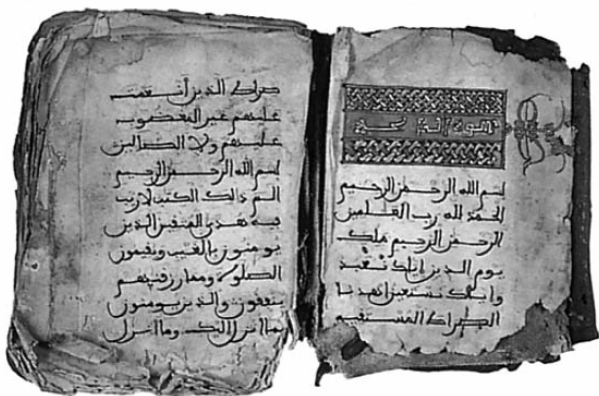 بسم الله الرحمن الرحيم
الحمد لله رب العلمين
الرحمن الرحيم ملك
يوم الدين اياك نعبد
واياك نستعين اهدنا
الصراط المستقيم
صراط الذين أنعمت
عليهم غير المغضوب
عليهم ولا الضالين
بسم الله الرحمن الرحيم
الم ذلك الكتب لا ريب
فيه هدى للمتقين الذين
يومنون بالغيب ويقيمون
الصلوة ومما رزقنهم
ينفقون والذين يومنون
بما انزل اليك وما انزل